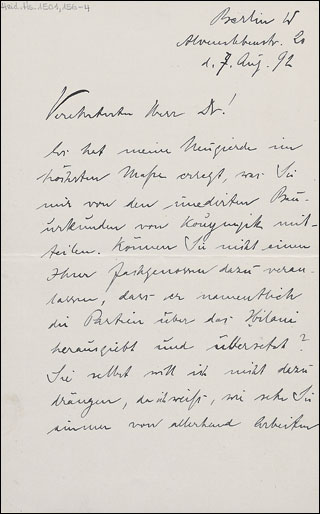 Heid. Hs. 1501, 156-4
Berlin W
Alvenslebenstr. 20
d. 7. Aug. 92
Verehrtester Herr Dr!
Es hat meine Neugierde im
höchsten Maße erregt, was Sie
mir von den unedirten Bau-
urkunden von Kouyunjik mit-
teilen. Können Sie nicht einen
Ihrer Fachgenossen dazu veran-
lassen, dass er namentlich
die Partien über das Hilani
herausgiebt und übersetzt?
Sie selbst will ich nicht dazu
drängen, da ich weiß, wie sehr Sie
immer von allerhand Arbeiten